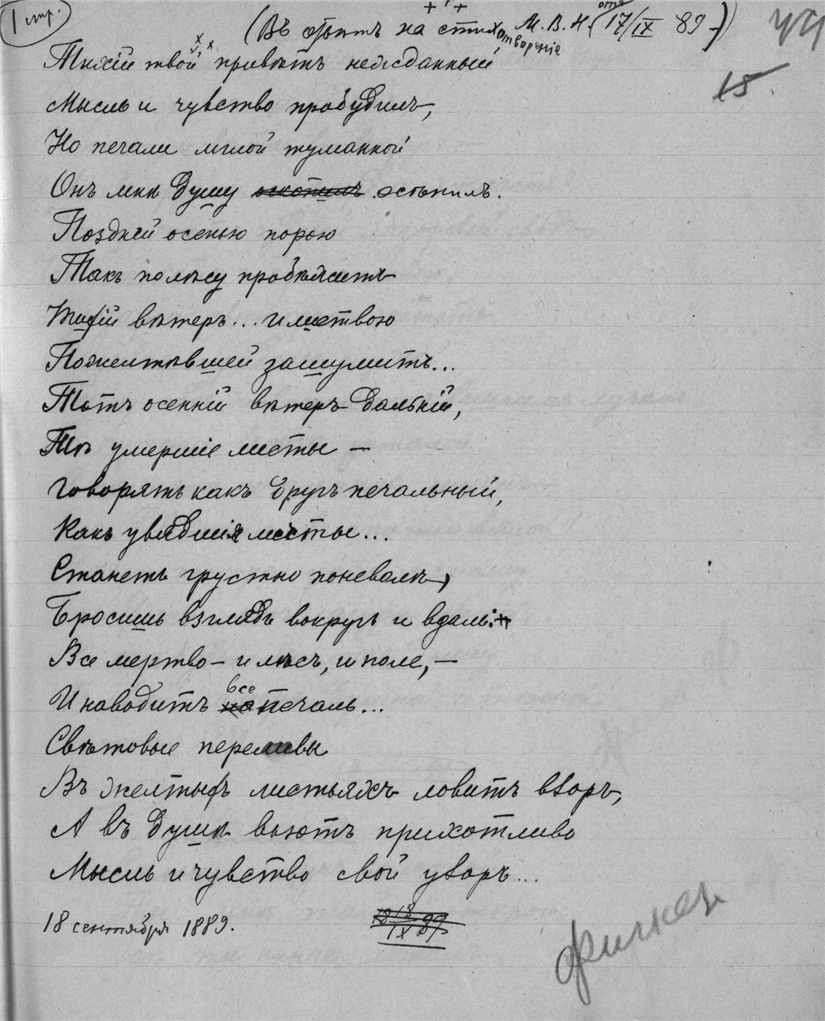 1 стр.
+ + +
(Въ отвѣтъ на стихотвореніе М. В. Н. (отъ 17/IX 89)
15.
Тихій твой привѣтъ нежданный
Мысль и чувство пробудилъ,
Но печали мглой туманной
Онъ мнѣ душу осѣнилъ.
Поздней осенью порою
Такъ по лѣсу пробѣжитъ
Тихій вѣтеръ... и листвою
Пожелтѣвшей зашумитъ...
Тотъ осенній вѣтеръ дальній,
Тѣ умершіе листы —
Говорятъ какъ другъ печальный,
Какъ увядшія мечты...
Станетъ грустно поневолѣ,
Бросишь взглядъ вокругъ и вдаль:
Все мертво — и лѣсъ, и поле, —
И наводитъ все печаль...
Свѣтовые переливы
Въ желтыхъ листьяхъ ловитъ взоръ,
А въ душѣ вьютъ прихотливо
Мысль и чувство свой узоръ...
18 сентября 1889.
18 IX 89